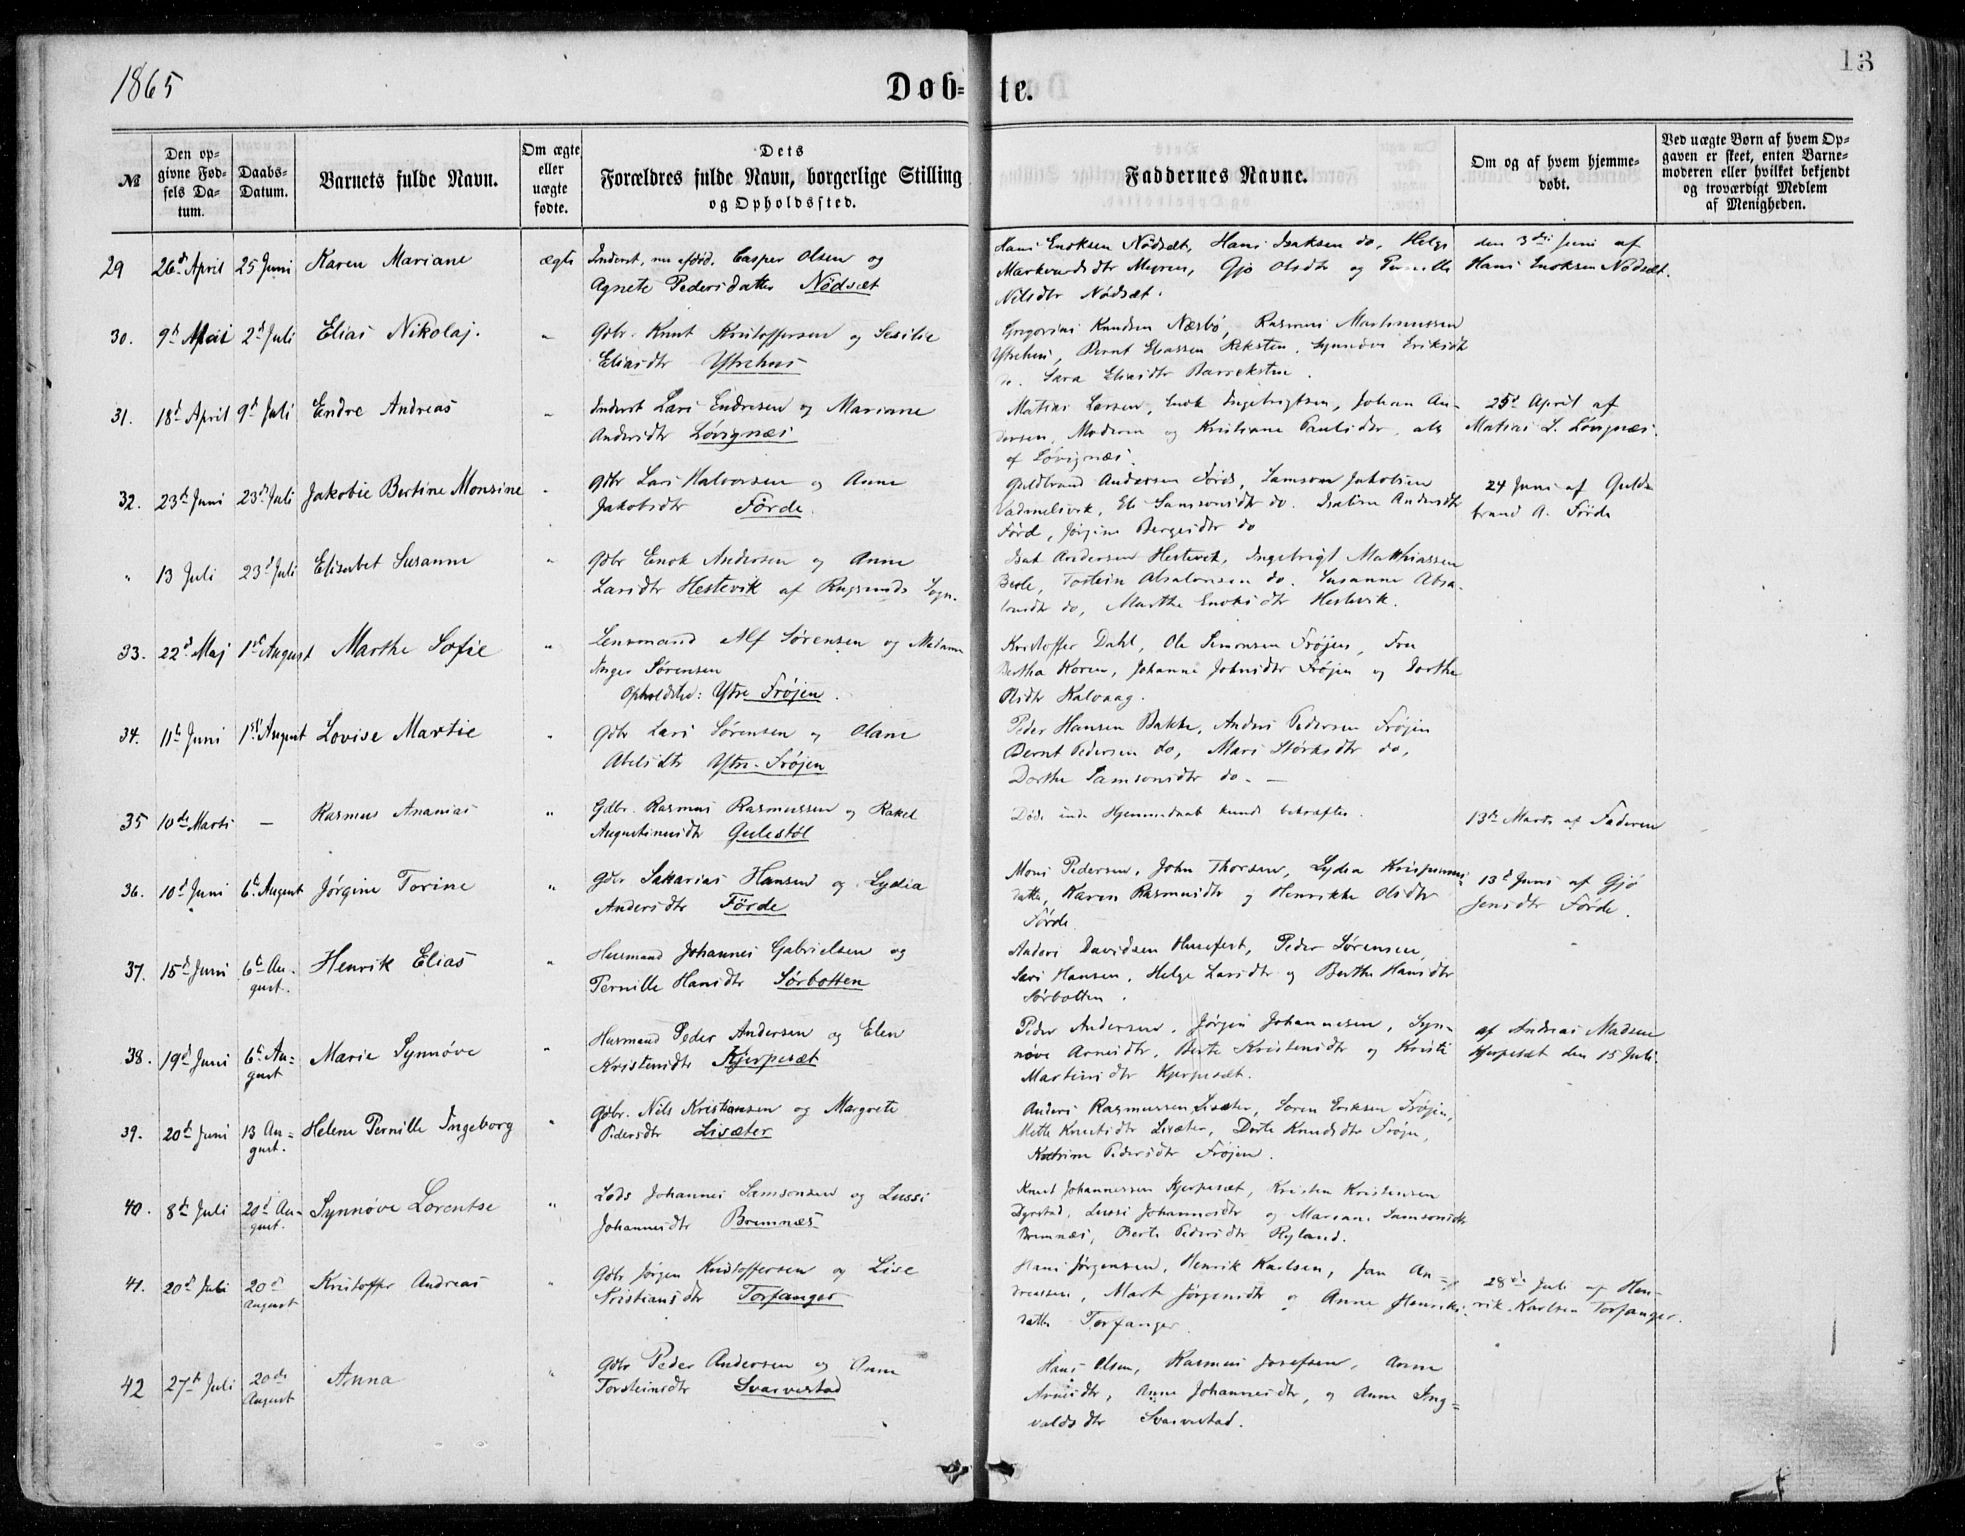 1865
Dob=
te.
13
№
Den op-
givne Fød-
sels Da-
tum.
Daabs-
Datum.
Barnets fulde Navn.
Om ægte
eller
uægte
fødte.
Dets
Forældres fulde Navn, borgerlige Stilling
og Opholdssted.
Faddernes Navne.
Om og af hvem hjemme-
døbt.
Ved uægte Børn af hvem Op-
gaven er skeet, enten Barne-
moderen eller hvilket bekjendt
og troværdigt Medlem
af Menigheden.
29 26d April 25 Juni Karen Mariane ægte Inderst, nu død, Casper Olsen og
Agnete Pedersdatter Nødsæt
Hans Enoksen Nødsæt, Hans Isaksen do, Helge
Markvardsdtr Myren, Gjø Olsdtr og Pernille
Nilsdtr Nødsæt.
den 3die Juni af
Hans Enoksen Nødsæt.
30. 9d Mai 2d Juli Elias Nikolaj. " Gdbr. Knut Kristoffersen og Sesilie
Eliasdtr Ytrehus
Gregorius Knudsen Næsbø, Rasmus Martinussen
Ytrehus, Bernt Eliassen Reksten, Synneve Eriksdtr
do. Sara Eliasdtr Barrekstein.
31. 18d April 9d Juli Endre Andreas " Inderst Lars Endresen og Mariane
Andersdtr Løvignæs
Matias Larsen, Enok Ingebrigtsen, Johan An-
dersen, Moderen og Kristiane Paulsdtr, alle
af Løvignæs.
25d April af
Matias L. Løvignæs.
32. 23d Juni 23d Juli Jakobie Bertine Monsine " Gdbr Lars Halvorsen og Anne
Jakobsdtr Førde.
Guldbrand Andersen Førde, Samson Jakobsen
Vadmelsvik, Eli Samsonsdtr do. Isaline Andersdtr
Førd, Jørgine Bergesdtr do
24 Juni af Guld-
brand A. Førde
" 13 Juli 23d Juli Elisabet Susanne " Gdbr Enok Andersen og Anne
Larsdtr Hestevik af Rugsunds Sogn.
Isak Andersen Hestevik, Ingebrigt Matthiassen
Berle, Torstein Absalonsen do. Susanne Absa-
lonsdtr do, Marthe Enoksdtr Hestevik.
33. 22d Maj 1st August Marthe Sofie " Lensmand Alf Sørensen og Madame
Inger Sørensen
Opholdsted: Ytre Frøjen.
Kristoffer Dahl, Ole Simonsen Frøjen, Fru
Bertha Koren, Johanne Johnsdtr Frøjen og Dorthe
Olsdtr Kalvaag.
34. 11d Juni 1st August Lovise Martie " Gdbr Lars Sørensen og Oline
Abelsdtr Ytre-Frøjen
Peder Hansen Bakke, Anders Pedersen Frøjen
Bernt Pedersen do, Mari Størksdtr do,
Dorthe Samsonsdtr do. —
35 10de Marts — Rasmus Ananias " Gdbr. Rasmus Rasmussen og Rakel
Augustinusdtr Gulestøl
Døde inden Hjemmedaab kunde bekræftes.
13de Marts af Faderen
36. 10d Juni 6t August Jørgine Torine " Gdbr Sakarias Hansen og Lydia
Andersdtr Førde
Mons Pedersen, John Thorsen, Lydia Krispinus-
datter, Karen Rasmusdtr og Henrikke Olsdtr
Førde
13d Juni af Gjø
Jensdtr Førde.
37. 15d Juni 6t Au-
gust. Henrik Elias " Husmand Johannes Gabrielsen og
Pernille Hansdtr Sørbotten
Anders Davidsen Husefest, Peder Sørensen,
Lars Hansen, Helge Larsdtr og Berthe Hansdtr
Sørbotten.
38. 19d Juni 6t Au-
gust Marie Synnøve " Husmand Peder Andersen og Elen
Kristensdtr Kjerpesæt
Peder Andersen, Jørgen Johannesen, Syn-
nøve Arnesdtr, Berte Kristensdtr og Kristi
Martinsdtr Kjerpesæt.
af Andreas Madsen
Kjerpesæt den 15 Juli
39. 20d Juni 13 Au-
gust. Helene Pernille Ingeborg " Gdbr. Nils Kristiansen og Margrete
Pedersdtr Lisæter
Anders Rasmussen Lisæter, Søren Eriksen Frøjen,
Mette Knutsdtr Lisæter, Dorte Knudsdtr Frøjen,
Katrine Pedersdtr Frøjen.
40. 8d Juli 20d Au-
gust. Synnøve Lorentse " Lods Johannes Samsonsen og Lussi
Johannesdtr Bremnæs
Knud Johannessen Kjerpesæt, Kristen Kristensen
Dyrstad, Lussi Johannesdtr og Mariane Samsonsdtr
Bremnæs, Berte Pedersdtr Ryland.
41. 20d Juli 20d
August Kristoffer Andreas " Gdbr Jørgen Kristoffersen og Lise
Kristiansdtr Torfanger
Hans Jørgensen, Henrik Karlsen, Jan An-
dreassen, Marte Jørgensdtr og Anne Henriks-
datter Torfanger.
28de Juli af Hen-
rik Karlsen Torfanger.
42 27d Juli 20de
August Anna " Gdbr Peder Andersen og Anne
Torsteinsdtr Svarvestad
Hans Olsen, Rasmus Josefsen, Anne
Arnesdtr, Anne Johannesdtr, og Anne Ing=
valdsdtr Svarvestad.